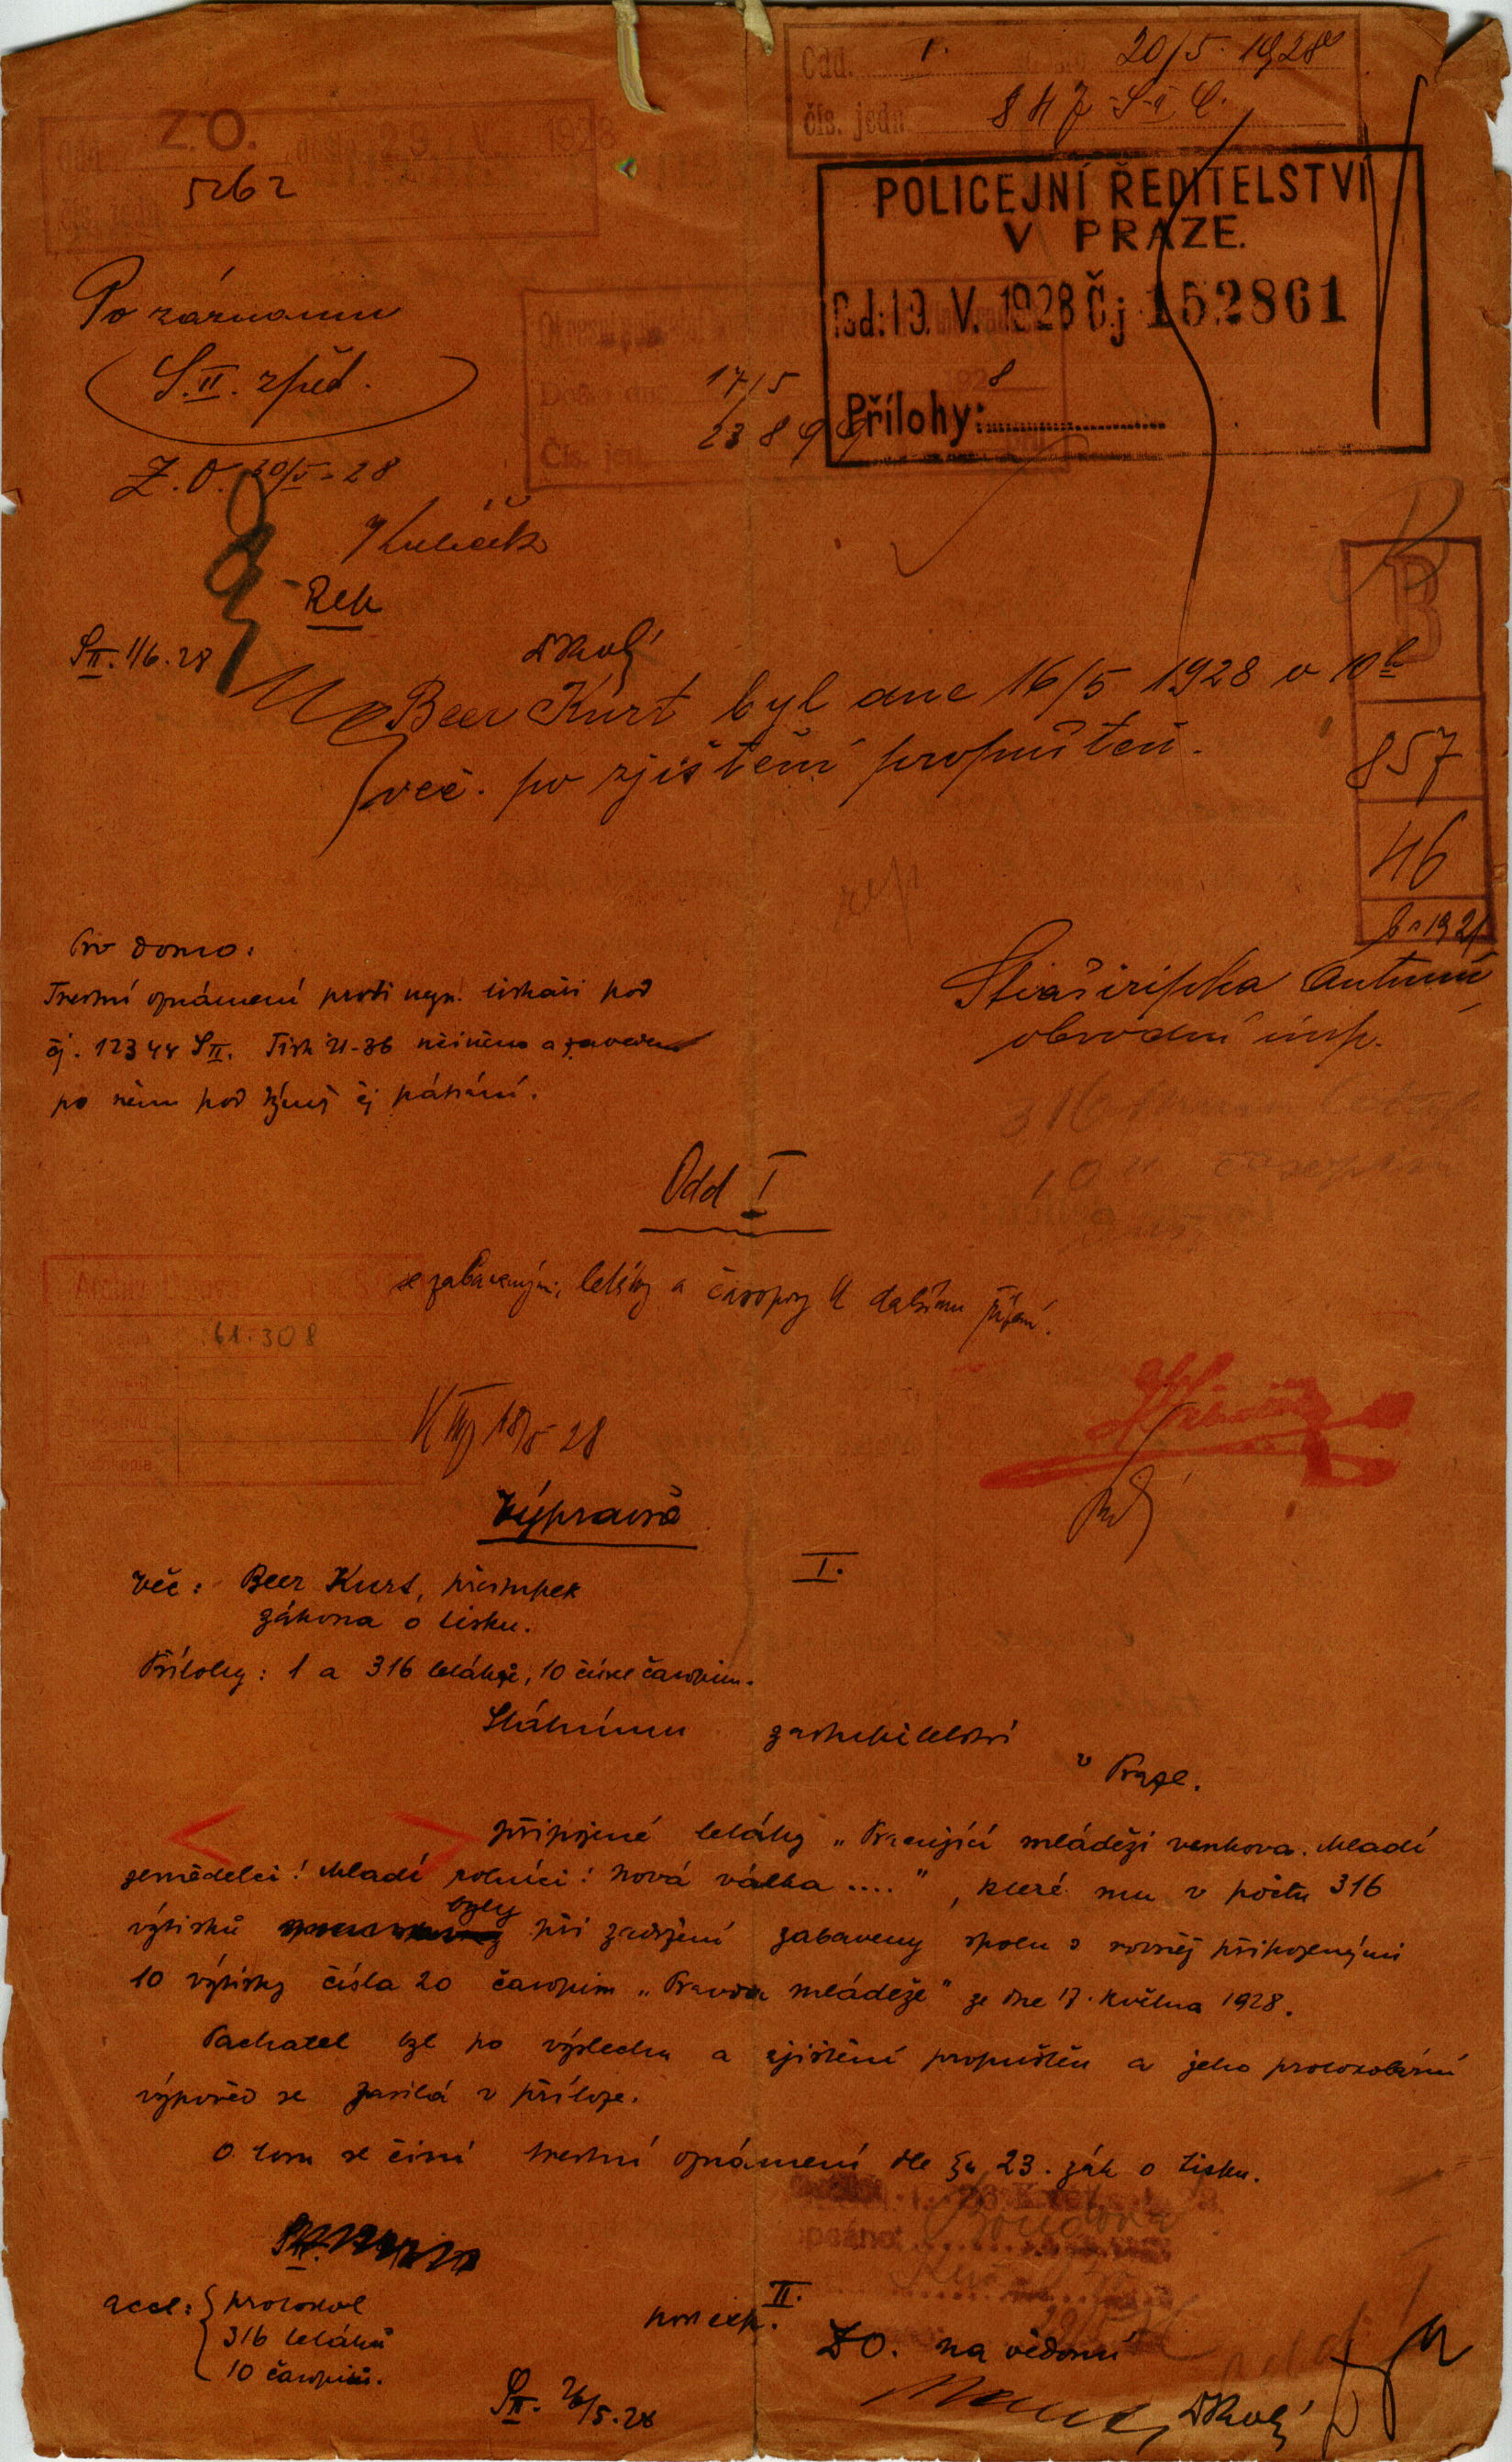 Odd. I. 20/5 1928
čís. jedn. 847 S-II C.
Z.O. došlo 23 V. 1928
čís. jedn. 5262
POLICEJNÍ ŘEDITELSTVÍ
V PRAZE.
Pod: 19. V. 1928 Čj 152861
Přílohy:
Došlo dne 17/5 1928
Čís. jed. 23899
Po záznamu
S.II. zpět.
Z.O. 20/5 - 28
Rep
SII. 1/6.28
B
857
46
Beer Kurt byl dne 16/5 1928 v 10 h
več. po zjištění propuštěn.
Pro domo:
Trestní oznámení proti nezn. tiskaři pod
čj. 12344 SII. Tisk 21-36 učiněno a zavedeno
po něm pod týmž čj pátrání.
Antonín
obvodní insp.
Odd I
se zabavenými letáky a časopisy k dalšímu řízení.
61.308
18/5 28
Výpravně
I.
Věc: Beer Kurt, přestupek
zákona o tisku.
Přílohy: 1 a 316 letáků, 10 čísel časopisu.
Státnímu zastupitelství
v Praze.
Připojené letáky „Pracující mládeži venkova. Mladí
zemědělci! Mladí rolníci! Nová válka ....", které mu v počtu 316
výtisků byly při zadržení zabaveny spolu s rovněž připojenými
10 výtisky čísla 20 časopisu „Pravda mládeže" ze dne 17. května 1928.
Pachatel byl po výslechu a zjištění propuštěn a jeho protokolární
výpověď se zasílá v příloze.
O tom se činí trestní oznámení dle §u 23. zák o tisku.
accl: protokol
316 letáků
10 časopisů.
II.
post exp.
ZO. na vědomí
SII. 26/5.28